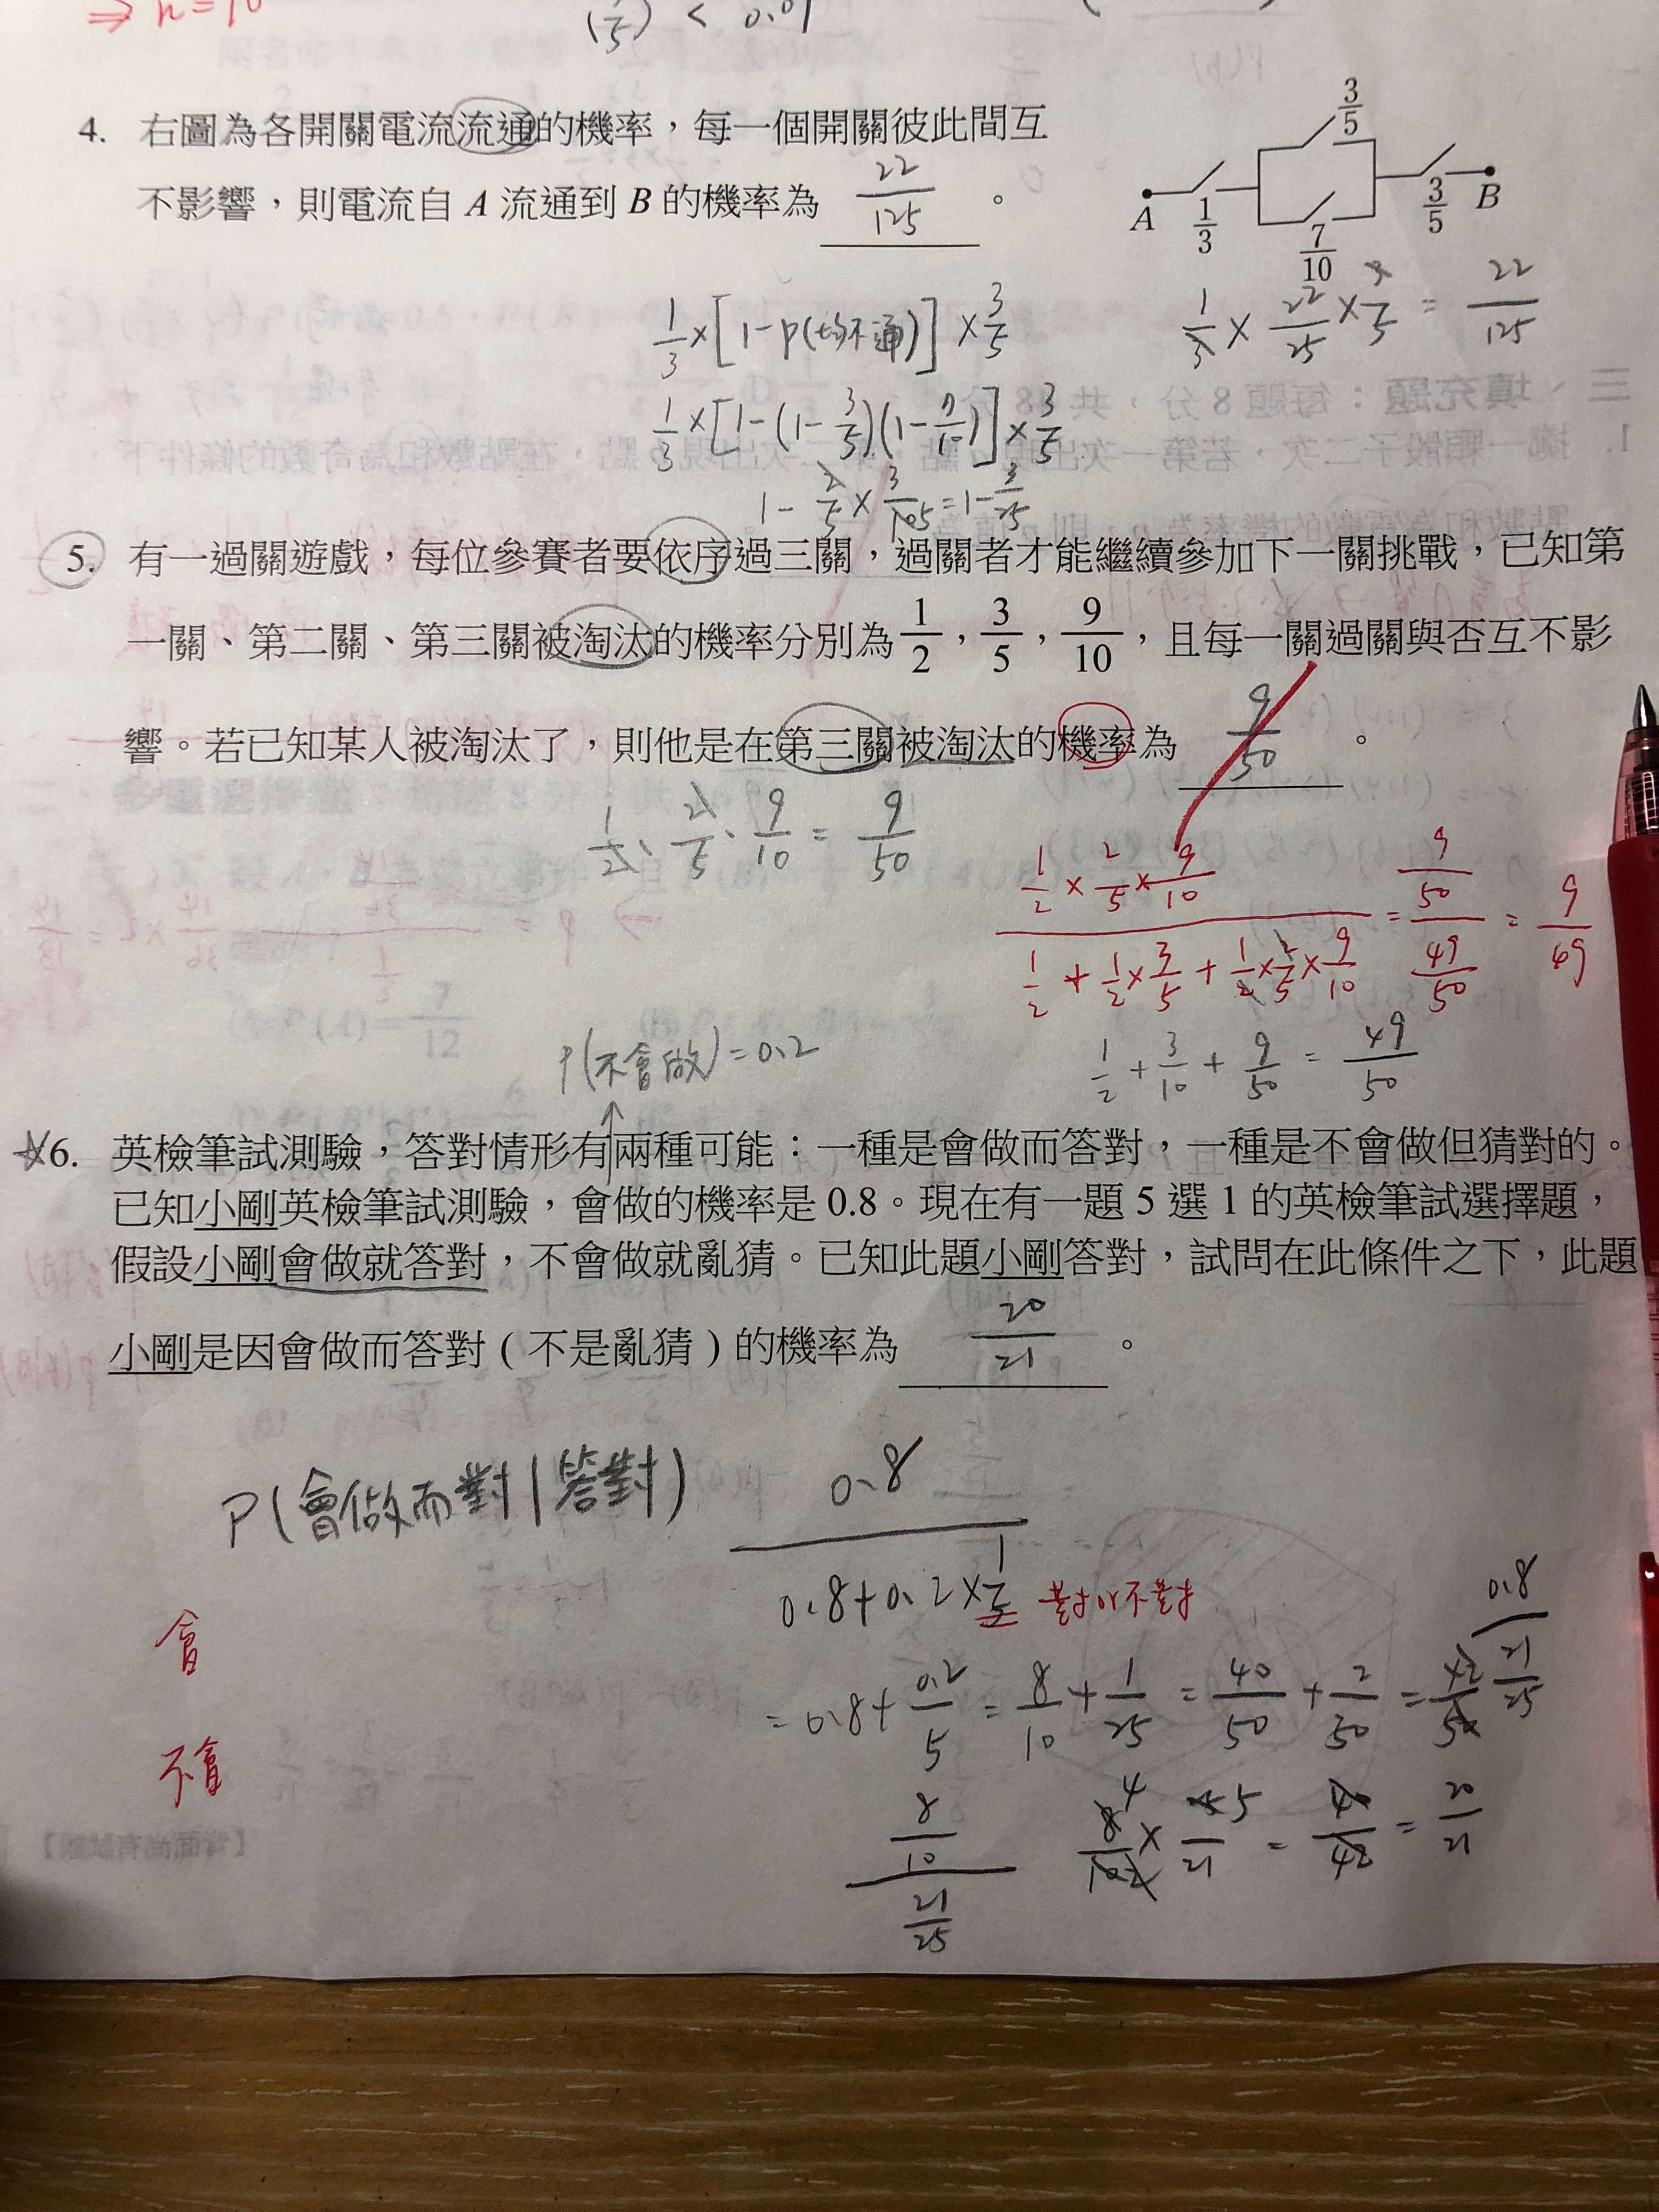 ⇒ n=10
(1/5) < 0.01
4. 右圖為各開關電流流通的機率，每一個開關彼此間互
不影響，則電流自 A 流通到 B 的機率為 22/125 。
3/5
A 1/3 7/10 3/5 B
1/3 × [1-P(均不通)] × 3/5
1/3 × 22/25 × 3/5 = 22/125
1/3 × [1-(1-3/5)(1-7/10)] × 3/5
1 - 2/5 × 3/10 5 = 1 - 3/25
5. 有一過關遊戲，每位參賽者要依序過三關，過關者才能繼續參加下一關挑戰，已知第
一關、第二關、第三關被淘汰的機率分別為 1/2，3/5，9/10，且每一關過關與否互不影
響。若已知某人被淘汰了，則他是在第三關被淘汰的機率為 9/50 。
1/2 · 2/5 · 9/10 = 9/50
(1/2 × 2/5 × 9/10)/(1/2 + 1/2 × 3/5 + 1/2 × 2/5 × 9/10) = (9/50)/(49/50) = 9/49
1/2 + 3/10 + 9/50 = 49/50
P(不會做)=0.2
☆6. 英檢筆試測驗，答對情形有兩種可能：一種是會做而答對，一種是不會做但猜對的。
已知小剛英檢筆試測驗，會做的機率是 0.8。現在有一題 5 選 1 的英檢筆試選擇題，
假設小剛會做就答對，不會做就亂猜。已知此題小剛答對，試問在此條件之下，此題
小剛是因會做而答對（不是亂猜）的機率為 20/21 。
P(會做而對|答對) 0.8/(0.8+0.2×1/5) 對or不對
會
= 0.8 + 0.2/5 = 8/10 + 1/25 = 40/50 + 2/50 = 42/50 0.8/(21/25)
不會
(8/10)/(21/25) 8/10 × 25/21 = 40/42 = 20/21